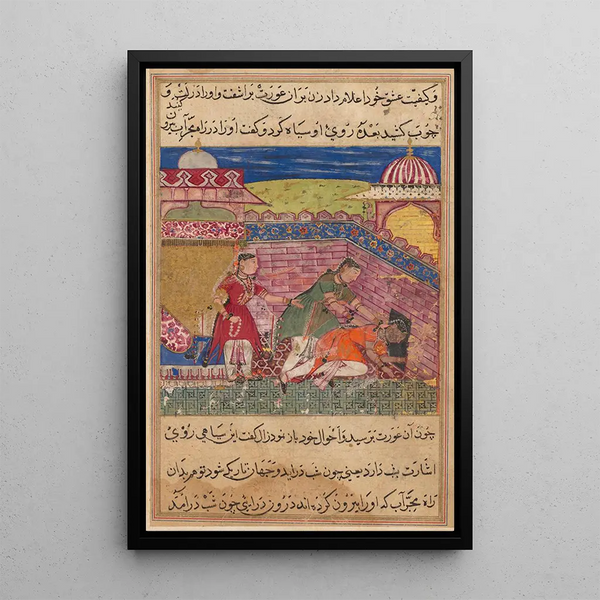 و کیفیت عشق خود اعلام داد زن بران عورت براشفت و اورا در لت و
کنید
چوب کشید بعده روی او سیاه کرد و گفت او را از راه مجراب بیرون
چون آن عورت برسید و احوال خود باز نمود زال گفت این سیاهی روی
اشارت بشب دارد یعنی چون شب دراید و جهان تاریک شود تو هم بدان
راه مجراب که او را بیرون کرده اند در روز درائی چون شب درآمد